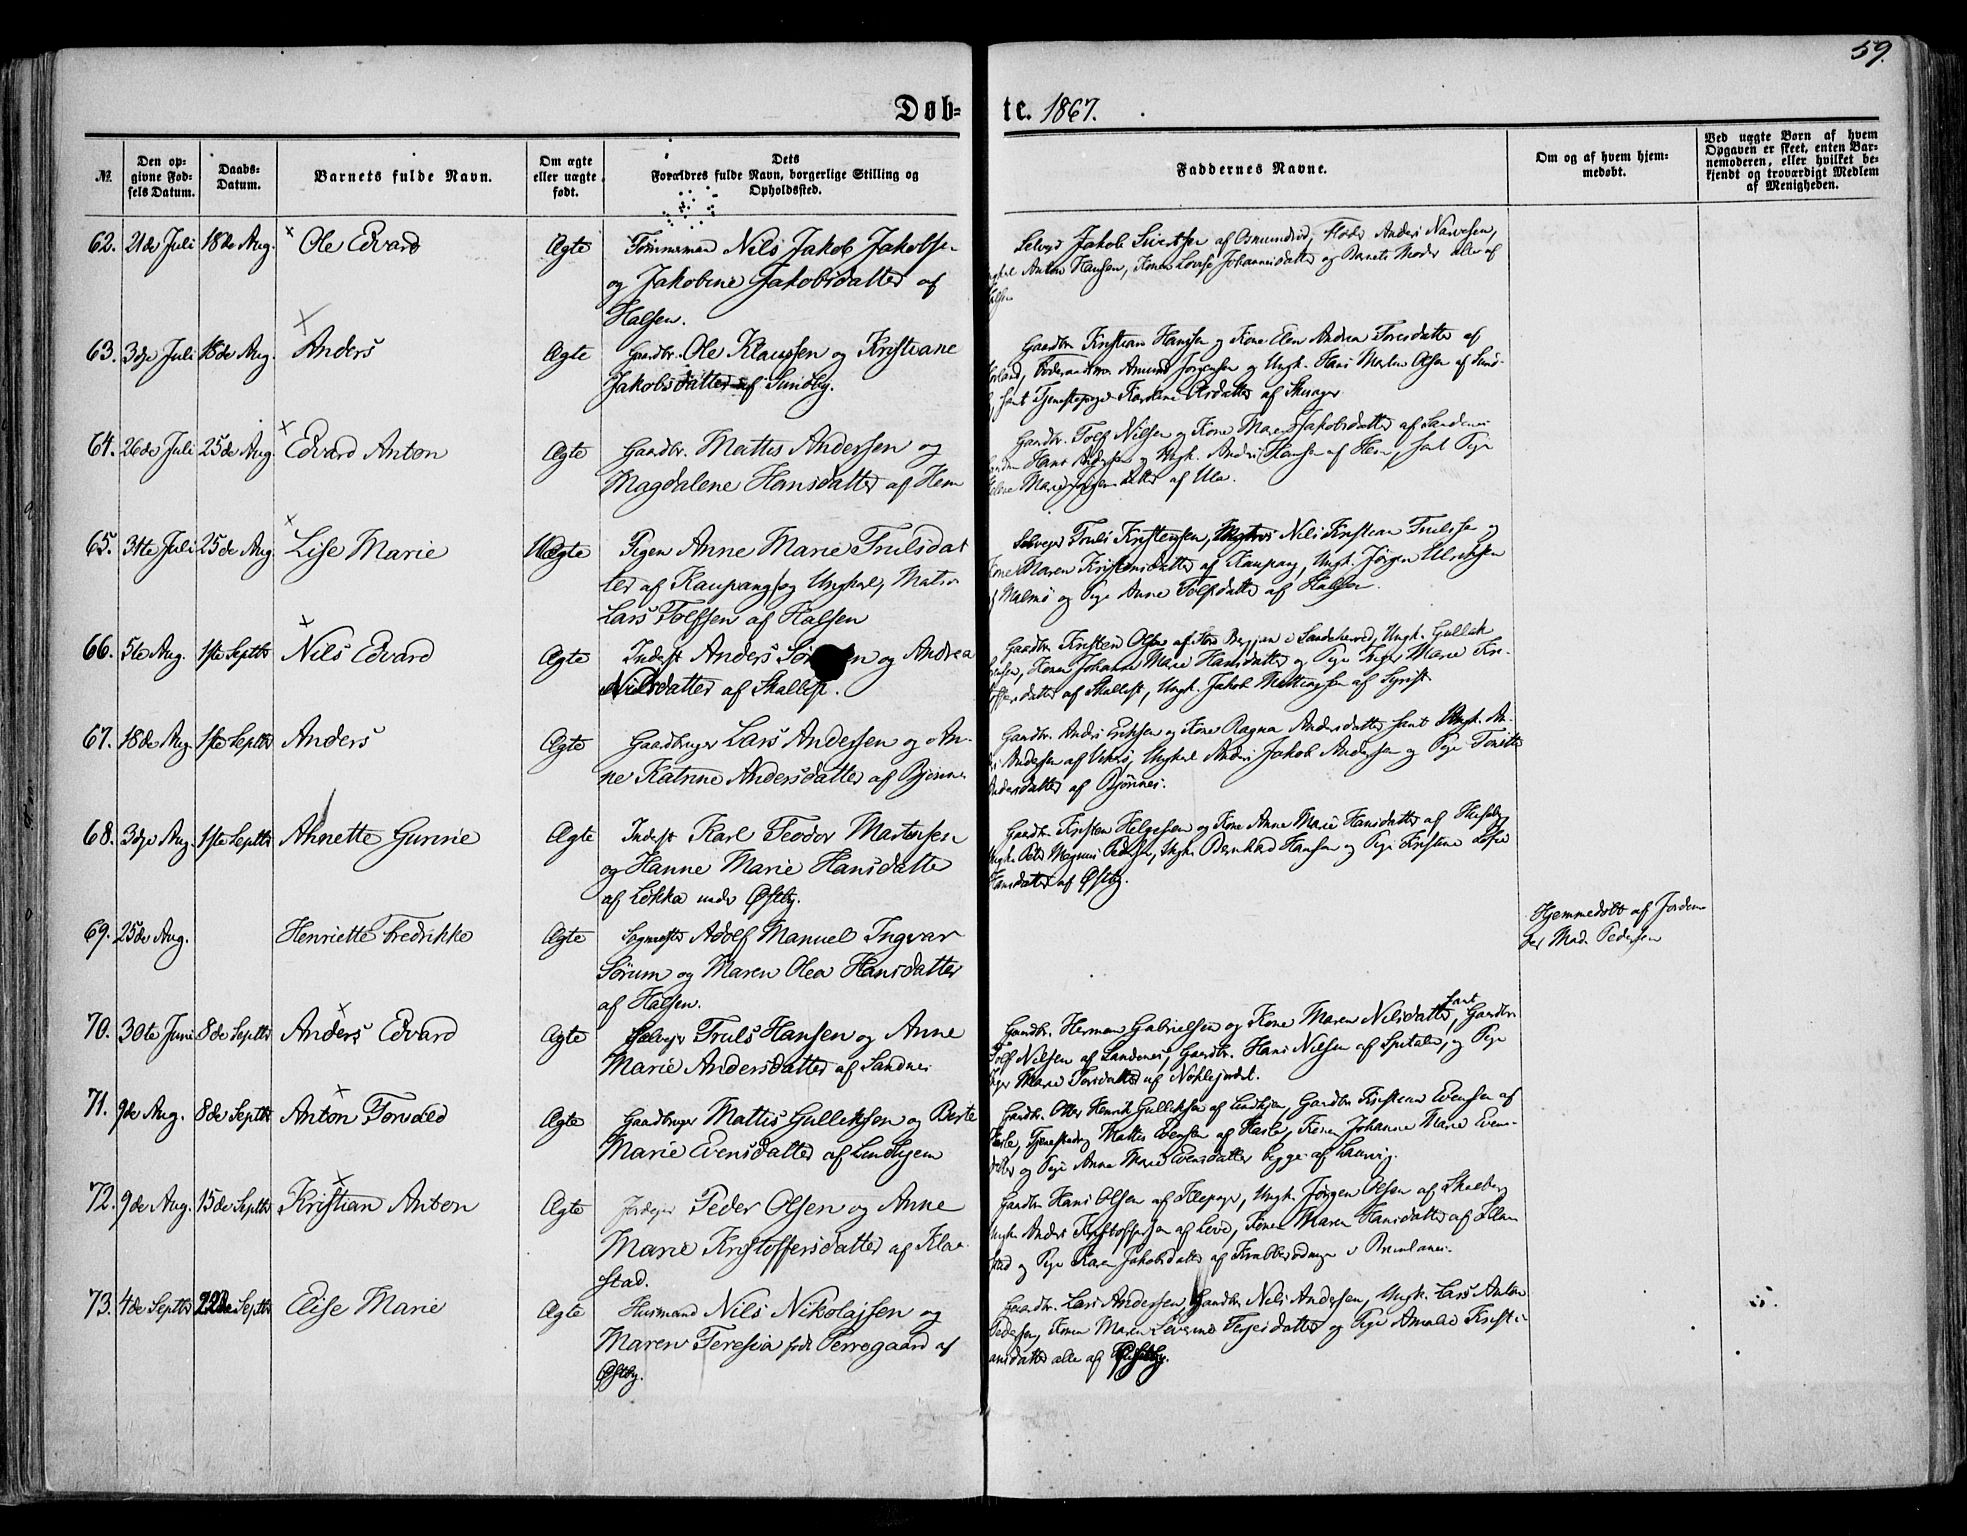 59.
Døb-te. 1867.
№
Den op-
givne Fød-
sels Datum.
Daabs-
Datum.
Barnets fulde Navn.
Om ægte
eller uægte
født.
Dets
Forældres fulde Navn, borgerlige Stilling og
Opholdssted.
Faddernes Navne.
Om og af hvem hjem-
medøbt.
Ved uægte Børn af hvem
Opgaven er skeet, enten Bar-
nemoderen, eller hvilket be-
kjendt og troværdigt Medlem
af Menigheden.
62. 21de Juli 18de Aug. Ole Edvard Ægte Tømmermand Nils Jakob Jakobse-
og Jakobine Jakobsdatter af
Halsen.
Selvej. Jakob Sivertsen af Osmundrød, Anders Narvesen,
Anton Hansen, Kone Lovise Johannesdatter og Barnets Moder alle af
Halsen
63. 3dje Juli 18de Aug. Anders Ægte Gaardbr. Ole Klaussen og Kristiane
Jakobsdatter af Sundby.
Gaardbr. Kristian Hanssen og Kone Elen Andrea Toresdatter af
Føderaadsm. Amund Jørgensen og Ungk. Hans Martin Olsen af Sund-
by samt Tjenestepige Karoline Olsdatter af Skisager
64. 26de Juli 25de Aug. Edvard Anton Ægte Gaardbr. Mattis Andersen og
Magdalene Hansdatter af Hem
Gaardbr. Tolf Nilsen og Kone Maren Jakobsdatter af Sandnes
Hans Andersen og Ungk. Anders Hansen af Hem, samt Pige
Helene Marie Jørgensdatter af Ula.
65. 31te Juli 25de Aug. Lise Marie Uægte Pigen Anne Marie Trulsdat
ter af Kaupang og Ungkarl, Matros
Lars Tolfsen af Halsen
Selvejer Truls Kristensen, Nils Kristian Trulssen og
Kone Maren Kristensdatter af Kaupang, Ungk. Jørgen Ulriksen
af Malmø og Pige Anne Tolfsdatter af Halsen.
66. 5te Aug. 1ste Septbr Nils Edvard Ægte Inderst Anders Sør n og Andrea
Nilsdatter af Skallist.
Gaardbr. Kristen Olsen af Store Bergan i Sandeherred, Ungk. Gullik
Kone Johanne Marie Hansdatter og Pige Inger Marie Kri-
stoffersdatter af Skallist, Ungk. Jakob Mattissen af Syrist
67. 18de Aug. 1ste Septbr Anders Ægte Gaardbruger Lars Andersen og An-
ne Katrine Andersdatter af Bjønnes
Gaardbr. Anders Eriksen og Kone Ragna Andersdatter samt Ungk. An-
ders Andersen af Ungkarl Anders Jakob Andersen og Pige Tonette
Andersdatter af Bjønnes.
68. 3dje Aug. 1ste Septbr Annette Gunnie Ægte Inderst Karl Teodor Martinsen
og Hanne Marie Hansdatter
af Løkka under Østby.
Gaardbr. Kristen Helgesen og Kone Anne Marie Hansdatter af Huseby
Ungk. Peter Magnus Pedersen, Ungk. Bernhard Hansen og Pige Kristine Lovise
Hansdatter af Østby.
69. 25de Aug. Henriette Fredrikke Ægte Sogmester Adolf Manuel Ingvar
Sørum og Maren Olea Hansdatter
af Halsen.
Hjemmedøbt af Jordemo-
der Mad. Pedersen
70. 30te Juni 8de Septbr Anders Edvard Ægte Selvejer Truls Hansen og Anne
Marie Andersdatter af Sandnes
Gaardbr. Herman Gabrielsen og Kone Maren Nilsdatter, samt Gaardbr.
Tolf Nilsen af Sandnes, Gaardbr. Hans Nilsen af Spitalen, og Pige
Inger Marie Torsdatter af Nøklegaard.
71. 9de Aug. 8de Septbr Anton Torvald Ægte Gaardbruger Mattis Gulliksen og Berte
Marie Evensdatter af Lindhjem
Gaardbr. Otter Henrik Gulliksen af Lindhjem, Gaardbr. Kristian Evensen af
Hasle, Tjenestedreng Mattis Evensen af Hasle, Kone Johanne Marie Evens-
datter og Pige Anne Marie Evensdatter begge af Laurvig.
72. 9de Aug. 15de Septbr Kristian Anton Ægte Jordejer Peder Olsen og Anne
Marie Kristoffersdatter af Klaa-
stad.
Gaardbr. Hans Olsen af Klepager, Ungk. Jørgen Olsen af Skalberg
Ungk. Anders Kristoffersen af Løve, Kone Maren Hansdatter af Klaa
stad og Pige Karen Jakobsdatter af Krabberødningen i Brunlanes.
73. 4de Septbr 22de Septbr Elise Marie Ægte Husmand Nils Nikolajsen og
Maren Teresia født Perregaard af
Østby.
Gaardbr. Lars Andersen, Gaardbr. Nils Andersen, Ungk. Lars Anton
Pedersen, Kone Maren Severine Terjesdatter og Pige Amalie Kristi-
ansdatter alle af Østby.